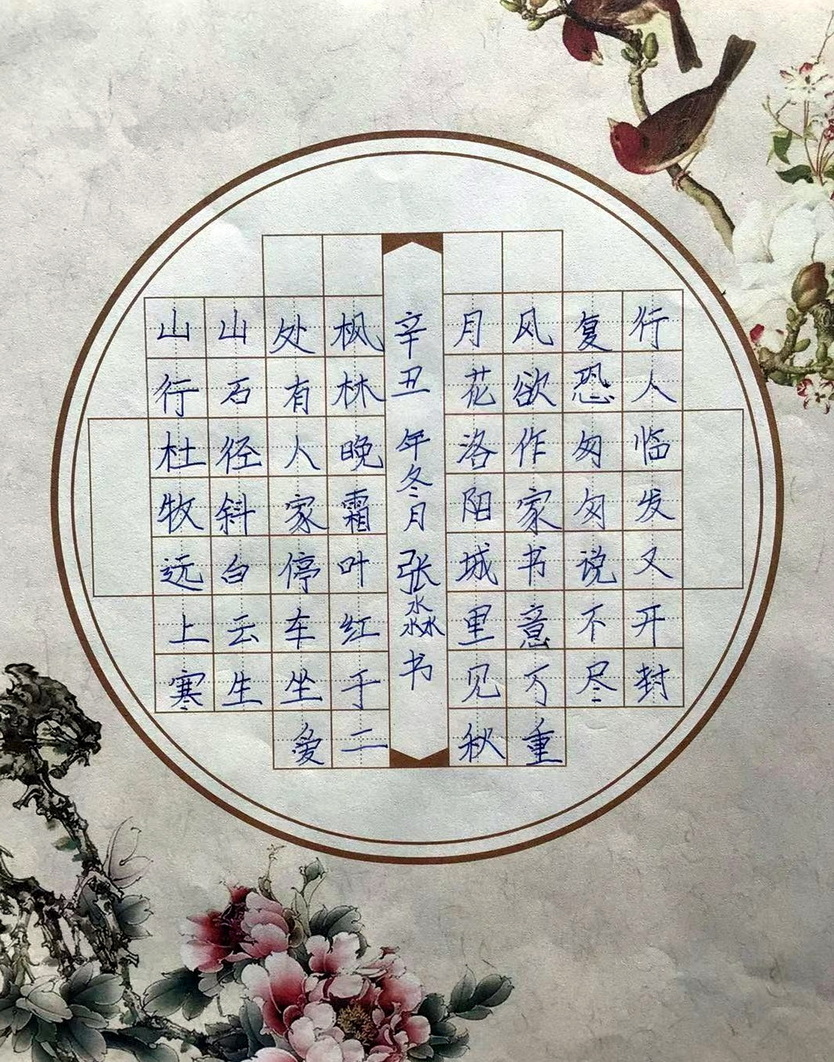 山行杜牧远上寒
山石径斜白云生
处有人家停车坐爱
枫林晚霜叶红于二
辛丑年冬月张淼书
月花洛阳城里见秋
风欲作家书意万重
复恐匆匆说不尽
行人临发又开封